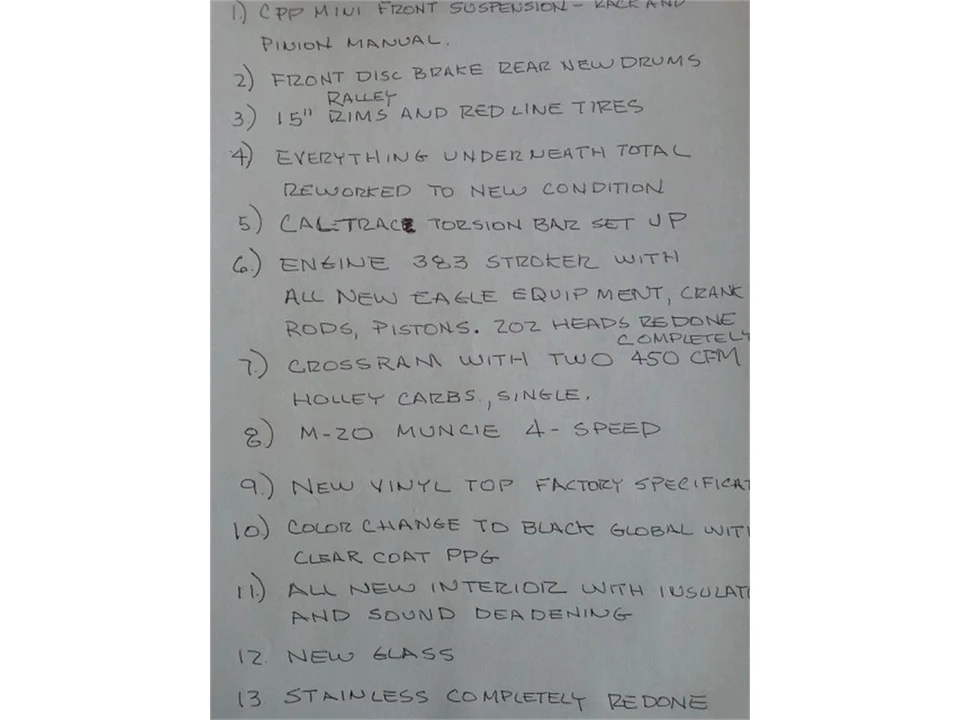 1.) CPP MINI FRONT SUSPENSION - RACK AND
PINION MANUAL.
2) FRONT DISC BRAKE REAR NEW DRUMS
RALLEY
3.) 15" RIMS AND RED LINE TIRES
4) EVERYTHING UNDERNEATH TOTAL
REWORKED TO NEW CONDITION
5.) CAL-TRACE TORSION BAR SET UP
6.) ENGINE 383 STROKER WITH
ALL NEW EAGLE EQUIPMENT, CRANK
RODS, PISTONS. 202 HEADS REDONE
COMPLETELY
7.) CROSSRAM WITH TWO 450 CFM
HOLLEY CARBS., SINGLE.
8.) M-20 MUNCIE 4-SPEED
9.) NEW VINYL TOP FACTORY SPECIFICAT
10.) COLOR CHANGE TO BLACK GLOBAL WITH
CLEAR COAT PPG
11.) ALL NEW INTERIOR WITH INSULATI
AND SOUND DEADENING
12 NEW GLASS
13. STAINLESS COMPLETELY REDONE